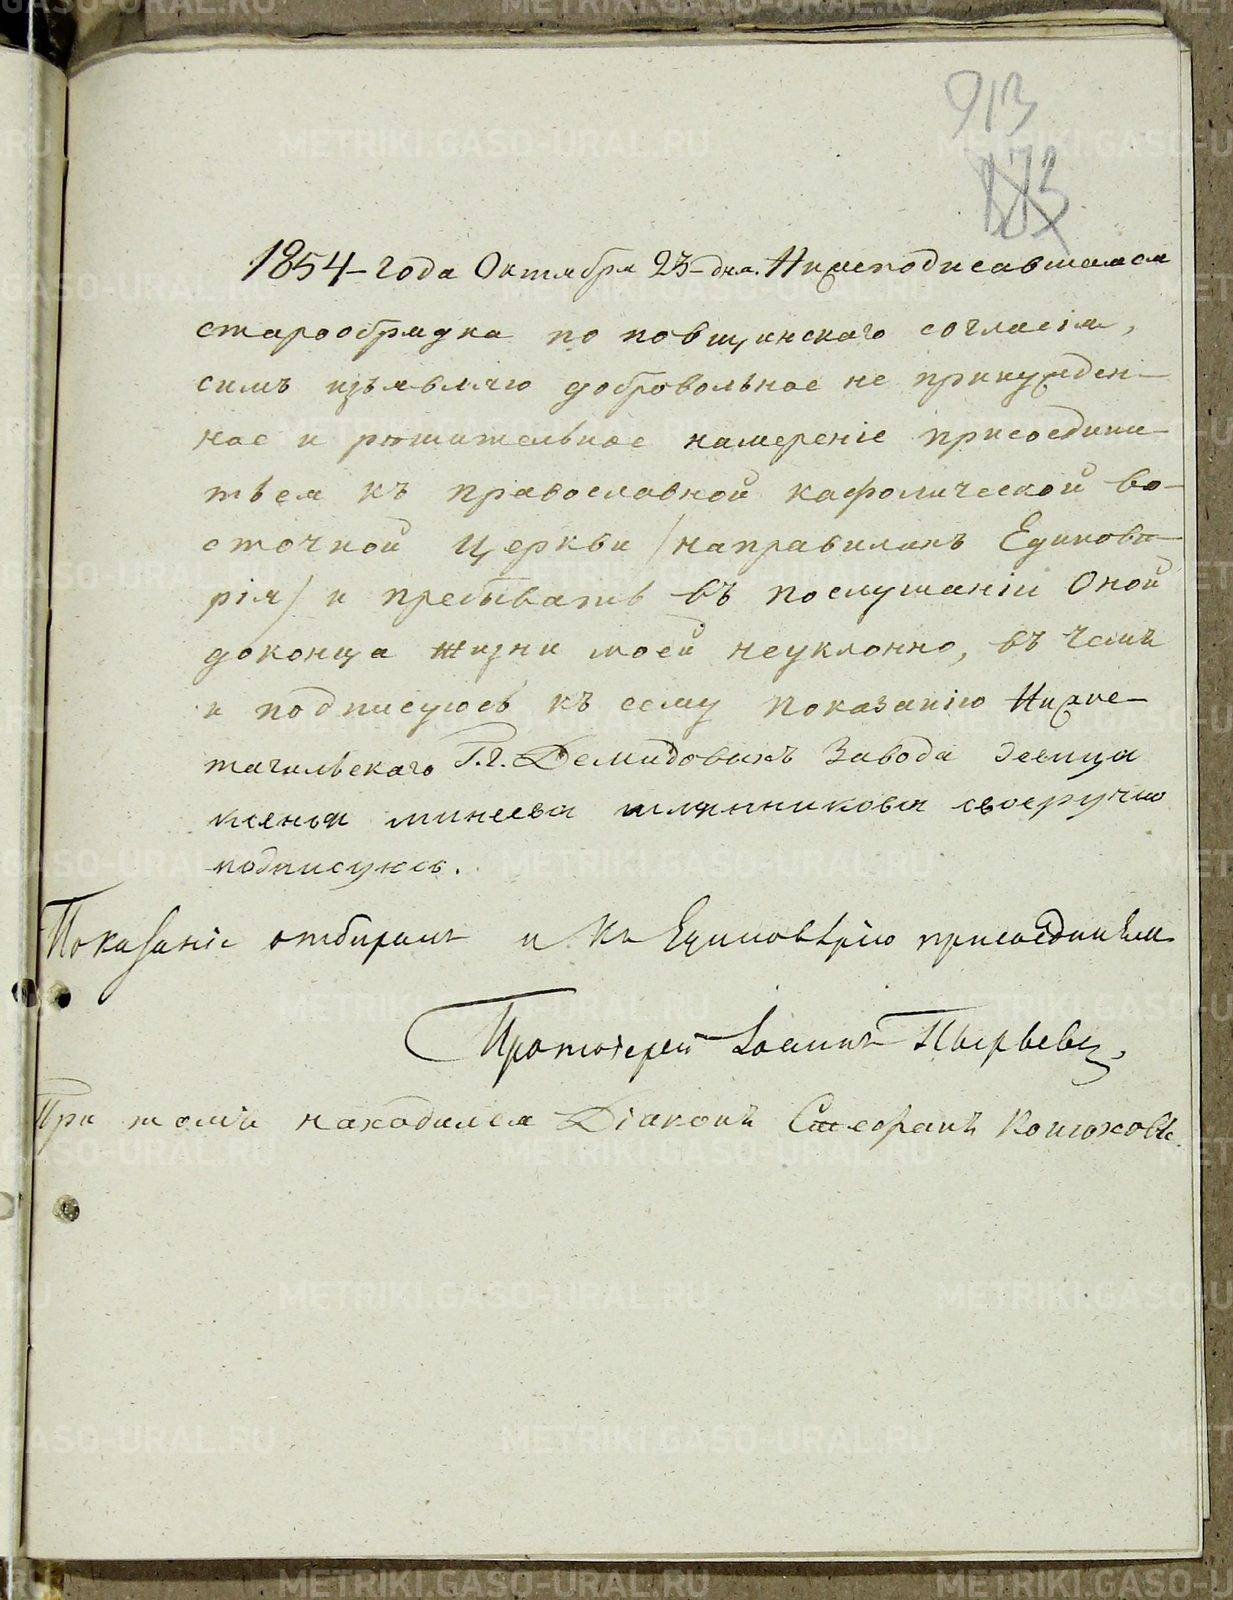 913
1854 - года Октября 23 - дня. Нижеподписавшаяся
старообрядка по повщинскаго согласія,
симъ изъявляю добровольное не принужден-
ное и рѣшительное намереніе присоедини-
тьея къ православной кафолической во-
сточной Церкви /направилахъ Единове-
рія/ и пребывать въ послушаніи Оной
доконца жизни моей неуклонно, въ чемъ
и подписуюсь къ сему показанію Нижне-
тагильскаго Г.г. Демидовыхъ Завода девица
ксенья минеева своеручно
подписуюсь.
Показаніе отбиралъ и къ Единовѣрію присоединилъ
Протоіерей Іоаннъ Пырьевъ,
При томъ находился Діаконъ Стефанъ Конюховъ.
METRIKI.GASO-URAL.RU